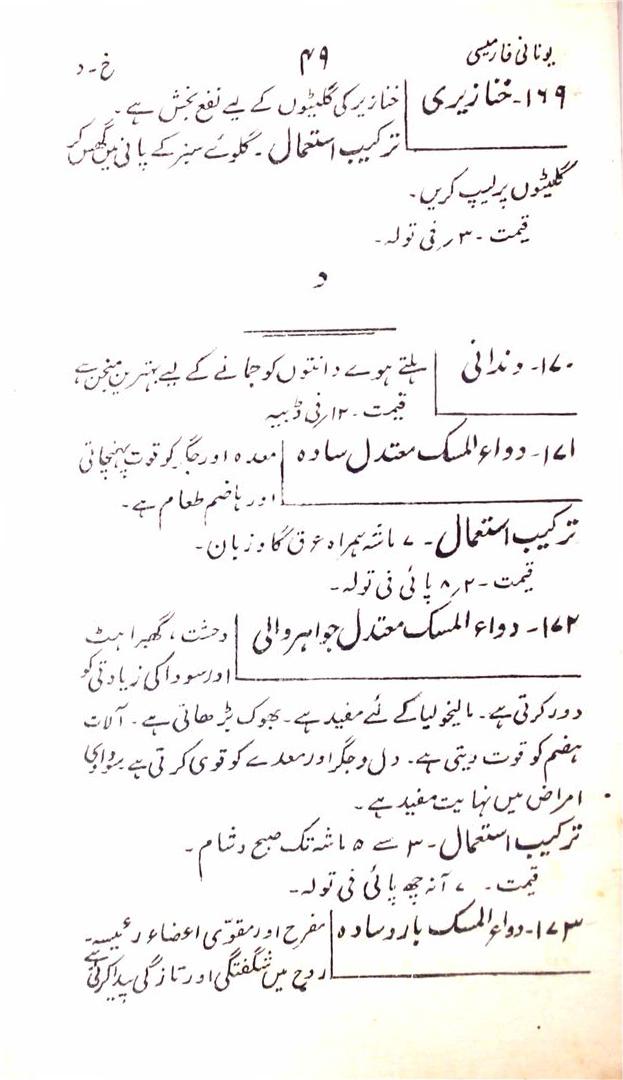 یونانی فارمیسی ۴۹ خ - د
۱۶۹- خنازیری خنازیر کی گلٹیوں کے لیے نفع بخش ہے۔
ترکیب استعمال ۔ گلوئے سبز کے پانی میں گھس کر
گلٹیوں پر لیپ کریں۔
قیمت - ۳؍ فی تولہ۔
د
۱۷۰- دندانی ہلتے ہوے دانتوں کو جمانے کے لیے بہترین منجن ہے
قیمت - ۱۲؍ فی ڈبیہ
۱۷۱- دواء المسک معتدل سادہ معدہ اور جگر کو قوت پہنچاتی
اور ہاضم طعام ہے۔
ترکیب استعمال - ۷ ماشہ ہمراہ عرق گاؤ زبان۔
قیمت - ۲؍ ۸ پائی فی تولہ۔
۱۷۲- دواء المسک معتدل جواہر والی وحشت، گھبراہٹ
اور سودا کی زیادتی کو
دور کرتی ہے۔ مالیخولیا کے لئے مفید ہے۔ بھوک بڑھاتی ہے۔ آلات
ہضم کو قوت دیتی ہے۔ دل و جگر اور معدے کو قوی کرتی ہے سوداوی
امراض میں نہایت مفید ہے۔
ترکیب استعمال - ۳ سے ۵ ماشہ تک صبح و شام۔
قیمت - ۷ آنہ چھ پائی فی تولہ۔
۱۷۳- دواء المسک بارد سادہ مفرح اور مقوّی اعضاء رئیسہ ہے
روح میں شگفتگی اور تازگی پیدا کرتی